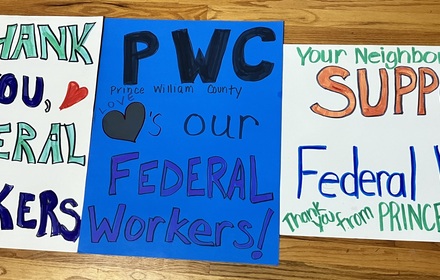 HANK
OU,
ERAL
KERS
PWC
Prince William County
LOVE
's our
FEDERAL
Workers!
Your Neighbo
SUPP
Federal
Thank you from PRINCE